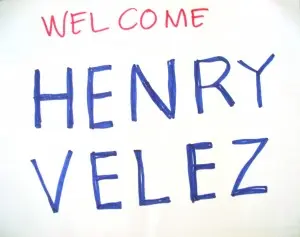 WELCOME
HENRY
VELEZ